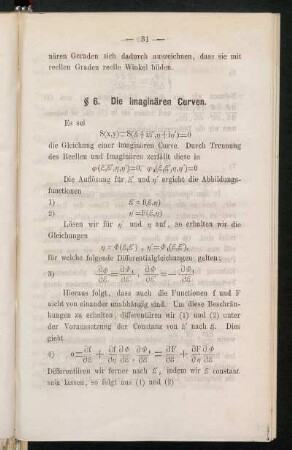 — 31 —
nären Geraden sich dadurch auszeichnen, dass sie mit
reellen Graden reelle Winkel bilden.
§ 6. Die imaginären Curven.
Es sei
S(x,y)=S(ξ+iξ',η+iη')=0
die Gleichung einer imaginären Curve. Durch Trennung
des Reellen und Imaginären zerfällt diese in
φ(ξ,ξ',η,η')=0, φ₁(ξ,ξ',η,η')=0
Die Auflösung für ξ' und η' ergiebt die Abbildungs-
functionen
1) ξ'=f(ξ,η)
2) η'=F(ξ,η)
Lösen wir für η' und η auf, so erhalten wir die
Gleichungen
η=Φ(ξ,ξ'), η'=Φ₁(ξ,ξ'),
für welche folgende Differentialgleichungen gelten:
3) ∂Φ/∂ξ = ∂Φ₁/∂ξ', ∂Φ/∂ξ' = −∂Φ₁/∂ξ
Hieraus folgt, dass auch die Functionen f und F
nicht von einander unabhängig sind. Um diese Beschrän-
kungen zu erhalten, differentiiren wir (1) und (2) unter
der Voraussetzung der Constanz von ξ' nach ξ. Dies
gibt
4) 0=∂f/∂ξ + ∂f/∂η ∂Φ/∂ξ, ∂Φ₁/∂ξ = ∂F/∂ξ + ∂F/∂η ∂Φ/∂ξ
Differentiiren wir ferner nach ξ', indem wir ξ constant
sein lassen, so folgt aus (1) und (2)